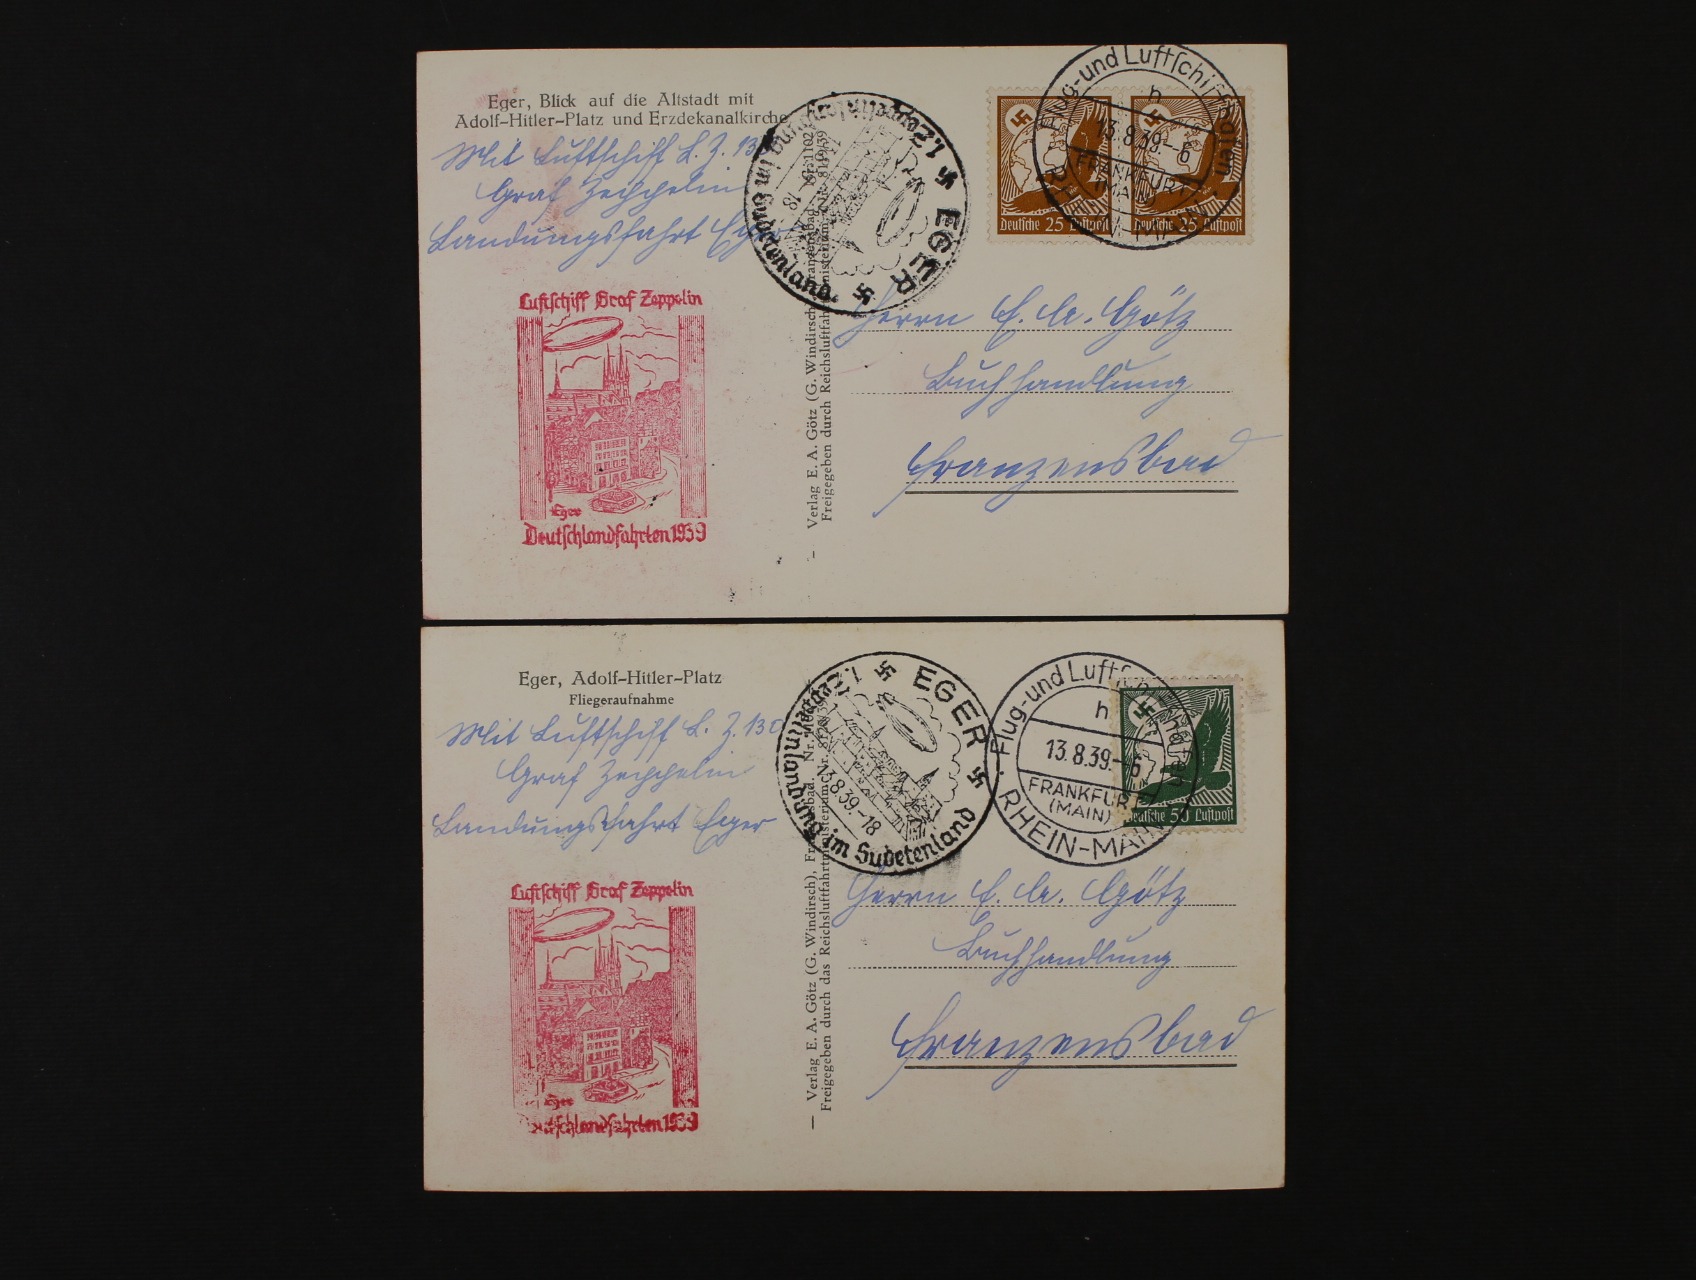 Eger, Blick auf die Altstadt mit
Adolf-Hitler-Platz und Erzdekanalkirche
Mit Luftschiff L. Z. 130
Graf Zeppelin
Landungsfahrt Eger
Luftschiff Graf Zeppelin
Eger
Deutschlandfahrten 1939
1. Zeppelinlandung im Sudetenland
EGER
18
— Verlag E. A. Götz (G. Windirsch), Franzensbad Nr. 1102
Freigegeben durch Reichsluftfahrtministerium
Deutsche 25 Luftpost
Deutsche 25 Luftpost
Flug- und Luftschiffhafen
h
13.8.39.-6
FRANKFURT
(MAIN)
RHEIN-MAIN
Herrn E. A. Götz
Buchhandlung
Franzensbad
Eger, Adolf-Hitler-Platz
Fliegeraufnahme
Mit Luftschiff L. Z. 130
Graf Zeppelin
Landungsfahrt Eger
Luftschiff Graf Zeppelin
Eger
Deutschlandfahrten 1939
1. Zeppelinlandung im Sudetenland
EGER
13.8.39.-18
— Verlag E. A. Götz (G. Windirsch), Franzensbad. Nr.
Freigegeben durch das Reichsluftfahrtministerium
Flug- und Luftschiffhafen
h
13.8.39.-6
FRANKFURT
(MAIN)
RHEIN-MAIN
Deutsche 50 Luftpost
Herrn E. A. Götz
Buchhandlung
Franzensbad